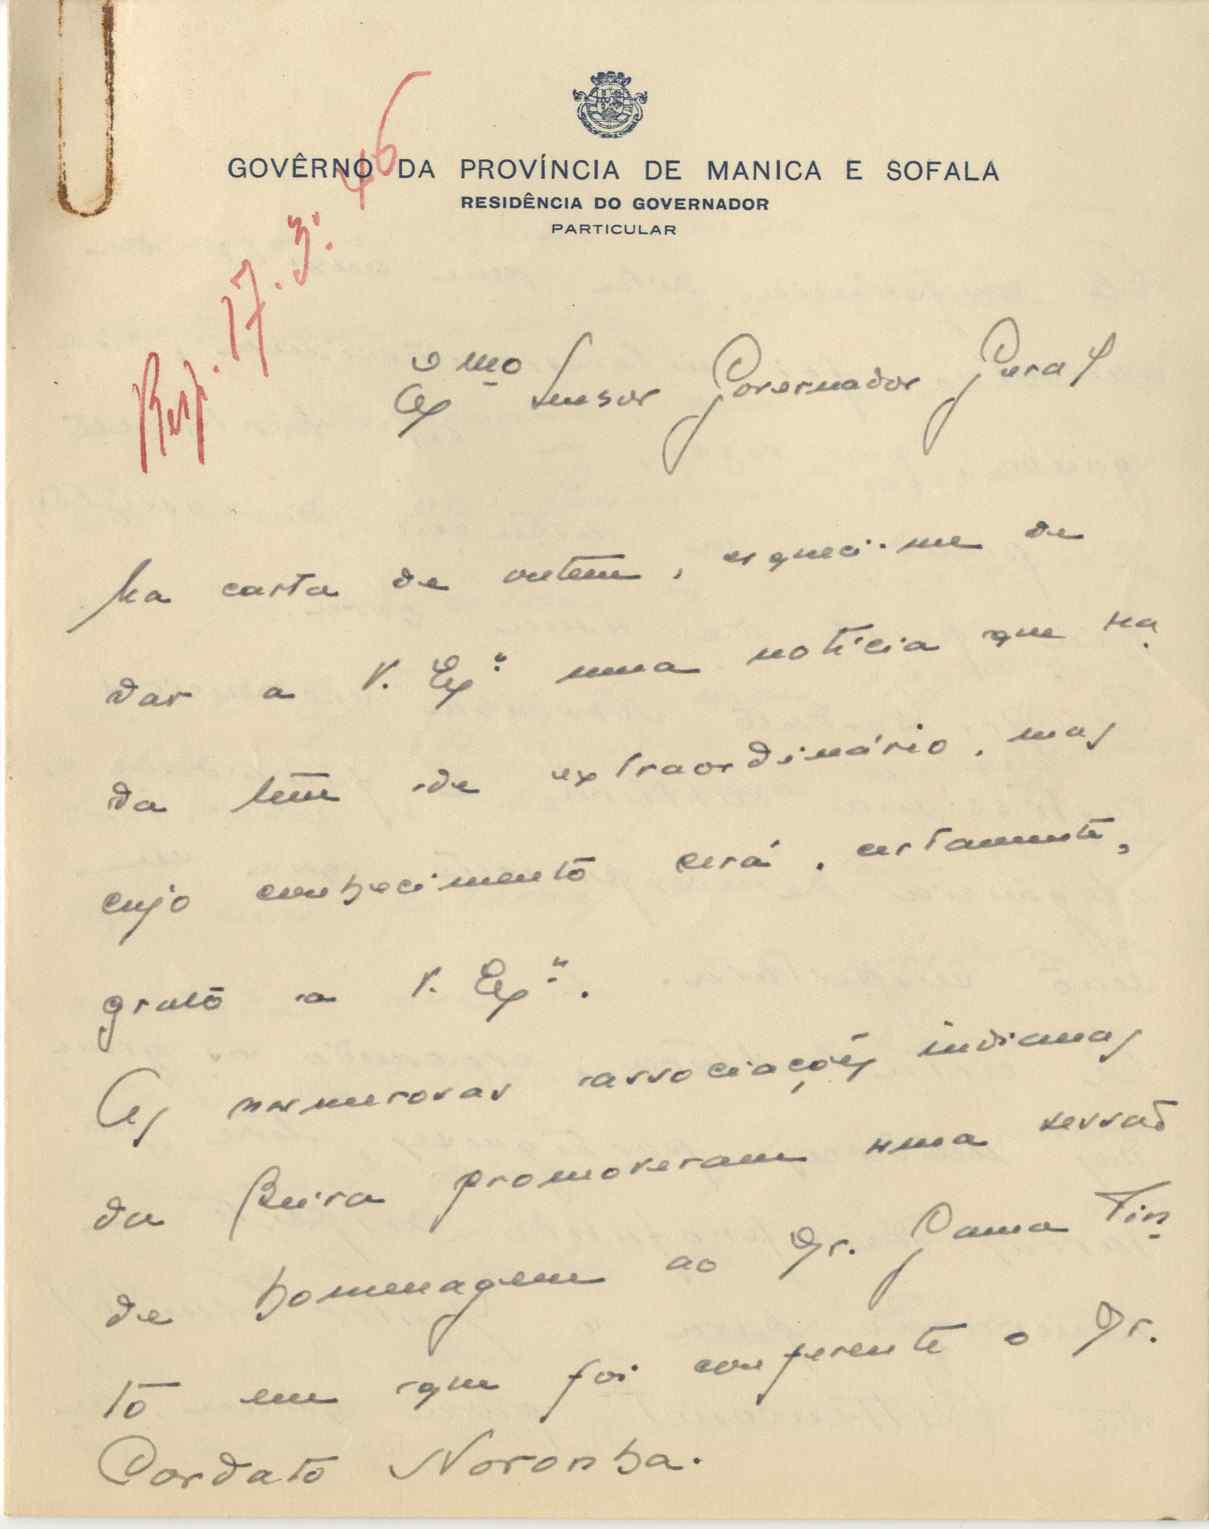 GOVÊRNO DA PROVÍNCIA DE MANICA E SOFALA
RESIDÊNCIA DO GOVERNADOR
PARTICULAR
Resp. 17.3.46
Exmo Senhor Governador Geral
Na carta de ontem, esqueci-me de
dar a V. Exª uma notícia que na-
da tem de extraordinário, mas
cujo conhecimento será, certamente,
grato a V. Exª.
As numerosas associações indianas
da Beira promoveram uma sessão
de homenagem ao Dr. Gama Pin-
to em que foi conferente o Dr.
Cordato Noronha.